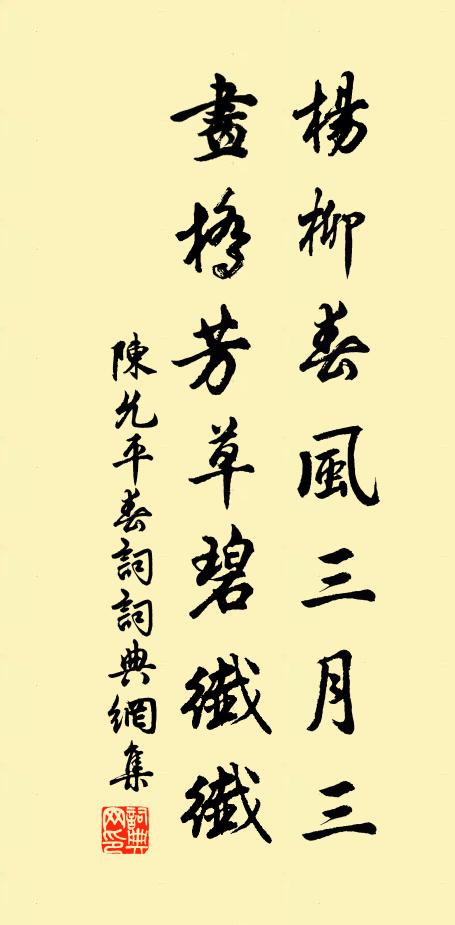 楊柳春風三月三
畫橋芳草碧纖纖
陳允平春詞詞典網集
詞典网印